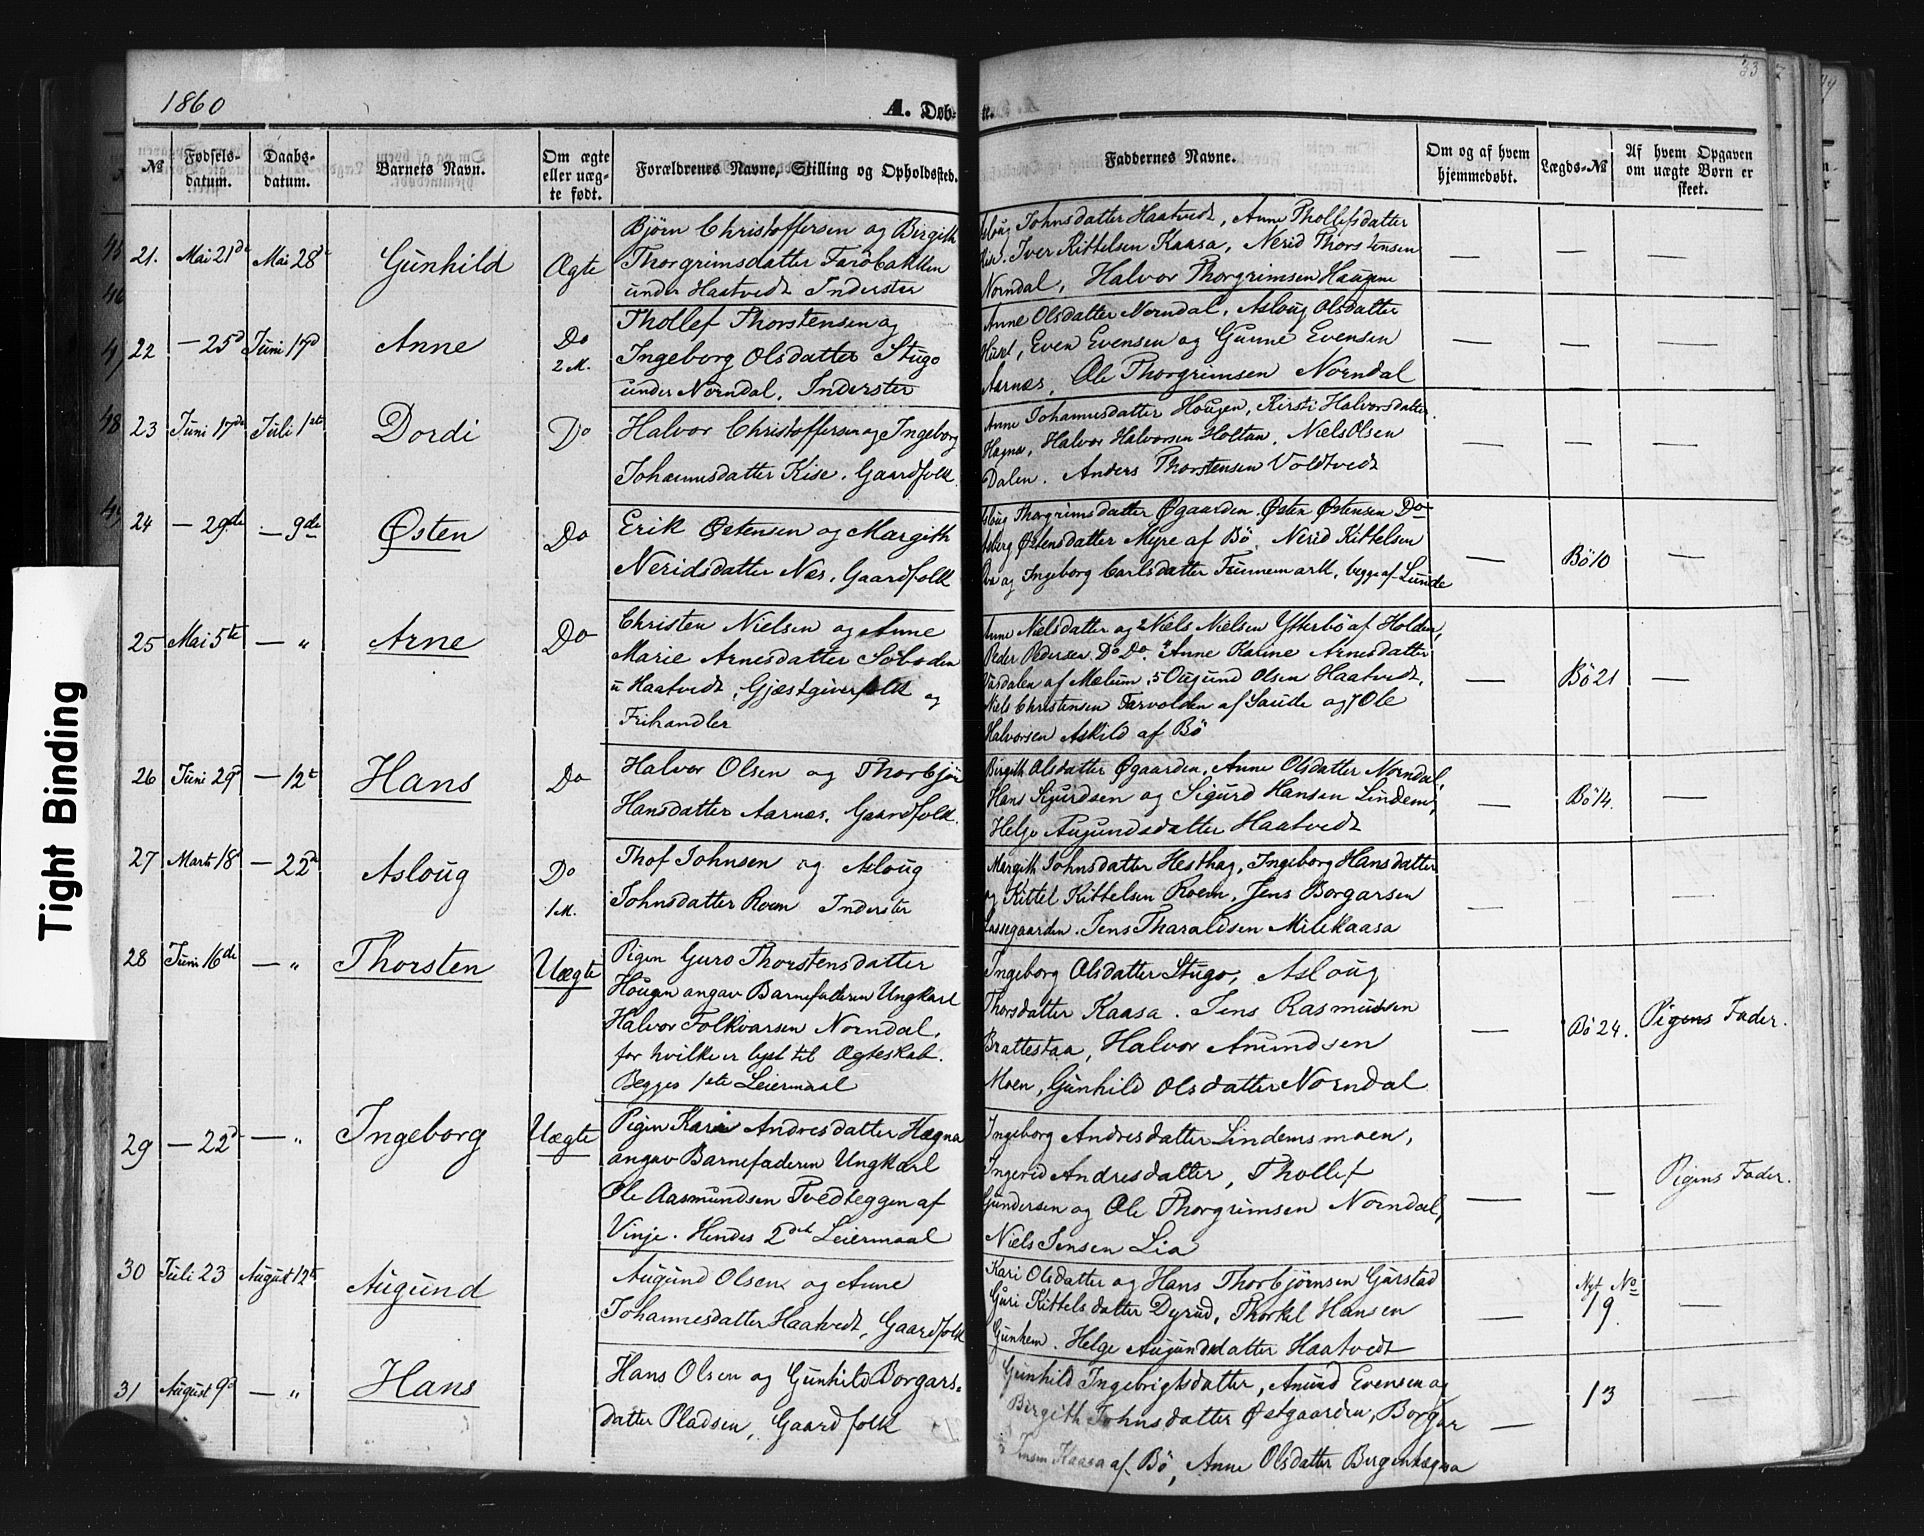 1860
A. Døb-
te.
33
№
Fødsels-
datum.
Daabs-
datum.
Barnets Navn.
Om ægte
eller uæg-
te født.
Forældrenes Navne, Stilling og Opholdssted.
Faddernes Navne.
Om og af hvem
hjemmedøbt.
Lægds-№
Af hvem Opgaven
om uægte Børn er
skeet.
21. Mai 21de Mai 28de Gunhild Ægte
Bjørn Christoffersen og Birgith
Thorgrimsdatter Farobakken
under Haatvedt Inderster
Johnsdatter Haatvedt, Anne Thollefsdatter
Kise. Iver Kittelsen Kaasa, Nerid Thorstensen
Norndal, Halvor Thorgrimsen Haugene
— — —
22 — 25d Juni 17d Anne Do
2 M.
Thollef Thorstensen og
Ingeborg Olsdatter Stugo
under Norndal, Inderster
Anne Olsdatter Norndal, Asloug Olsdatter
Even Evensen og Gunne Evensen
Aarnæs, Ole Thorgrimsen Norndal
— — —
23 Juni 17de Juli 1ste Dordi Do
Halvor Christoffersen og Ingeborg
Johannesdatter Kise, Gaardfolk
Anne Johannesdatter Hougen, Kirsti Halvorsdatter
Hagna, Halvor Halvorsen Holtan, Niels Olsen
Dalen. Anders Thorstensen Voldtvedt
— — —
24 — 29de — 9de Østen Do
Erik Østensen og Margith
Neridsdatter Næs, Gaardfolk
Thorgrimsdatter Øgaarden, Østen Østensen Do
Østensdatter Myre af Bø, Nerid Kittelsen
og Ingeborg Carlsdatter Tunnemark, begge af Lunde
— Bø 10 —
25 Mai 5te — " Arne Do
Christen Nielsen og Anne
Marie Arnesdatter Søboden
u Haatvedt, Gjæstgiverfolk og
Frihandler
Anne Nielsdatter og 2 Niels Nielsen Ytterbø af Holden,
Peder Pedersen Do Do. 4 Anne Karine Arnesdatter
Vasdalen af Mælum, 5 Ougund Olsen Haatvedt,
Niels Christensen Tarvolden af Saude og 7 Ole
Halvorsen Askild af Bø
— Bø 21 —
26 Juni 29d — 12te Hans Do
Halvor Olsen og Thorbjør
Hansdatter Aarnæs, Gaardfolk.
Birgith Olsdatter Øgaarden, Anne Olsdatter Norndal,
Hans Sigurdsen og Sigurd Hansen Lindem,
Helje Augundsdatter Haatvedt
— Bø 14. —
27 Marts 18d — 22de Asloug Do
1 M.
Thof Johnsen og Asloug
Johnsdatter Roem Inderster
Margith Johnsdatter Hesthag, Ingeborg Hansdatter
og Kittel Kittelsen Roem, Jens Borgarsen
Jens Tharaldsen Milekaasa
— — —
28 Juni 16de — " Thorsten Uægte
Pigen Guro Thorstensdatter
Hougen angav Barnefaderen Ungkarl
Halvor Folkvarsen Norndal,
for hvilke er lyst til Ægteskab.
Begges 1ste Leiermaal
Ingeborg Olsdatter Stugo, Asloug
Thorsdatter Kaasa. Jens Rasmussen
Brattestaa, Halvor Anundsen
Moen, Gunhild Olsdatter Norndal
— Bø 24. Pigens Fader.
29 — 22d — " Ingeborg Uægte
Pigen Kari Andresdatter Hægna
angav Barnefaderen Ungkarl
Ole Aasmundsen Tvedteggen af
Vinje. Hendes 2det Leiermaal
Ingeborg Andresdatter Lindemsmoen,
Ingerid Andresdatter, Thollef
Gundersen og Ole Thorgrimsen Norndal,
Niels Jensen Lia
— — Pigens Fader.
30 Juli 23 August 12te Augund
Augund Olsen og Anne
Johannesdatter Haatvedt, Gaardfolk
Kari Olsdatter og Hans Thorbjørnsen Garstad
Guri Kittelsdatter Dyrud, Thorkel Hansen
Gunhem. Helge Augundsdatter Haatvedt
— Nyt No
19. —
31 August 9d — " Hans
Hans Olsen og Gunhild Borgars-
datter Pladsen, Gaardfolk
Gunhild Ingebrigtsdatter, Anund Evensen og
Bergith Johnsdatter Østgaarden, Borgar
Jensen Kaasa af Bø, Anne Olsdatter Bergenhægna
— 13 —
Tight Binding